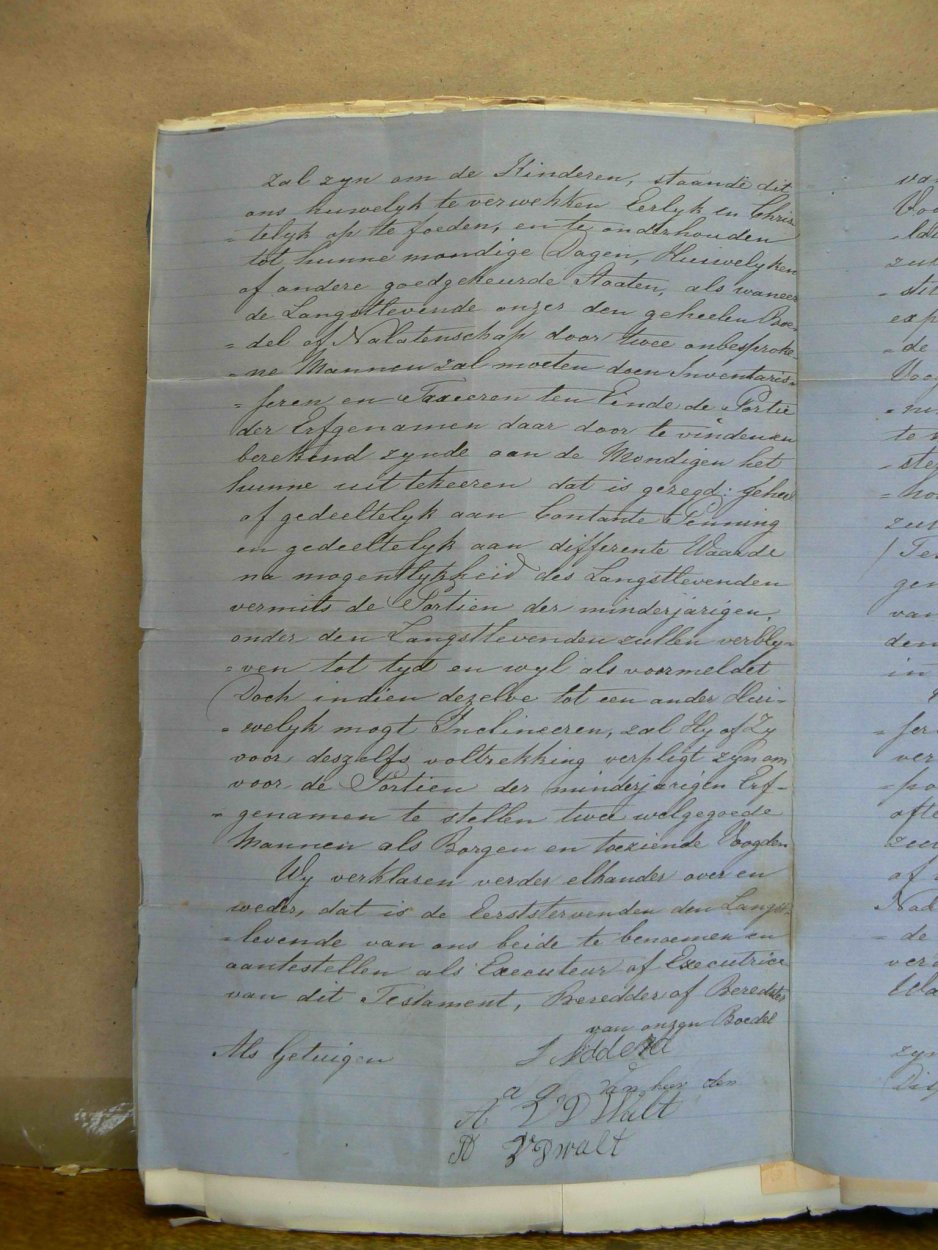 zal zyn om de Kinderen, staande dit
ons huwelyk te verwekken Eerlyk en Chris
- telyk op te foeden, en te onderhouden
tot hunne mondige Dagen, Huwelyken
of andere goedgekeurde Staaten, als waneer
de Langstlevende onzer den geheelen Boe-
- del of Nalatenschap door twee onbesproke-
- ne Mannen zal moeten doen Inventaris-
- feren en Taxeren ten Einde de Portie
der Erfgenamen daar door te vinden en
berekend zynde aan de Mondigen het
hunne uit te keeren dat is gezegd: geheel
of gedeeltelyk aan Contante Penning
en gedeeltelyk aan differente Waarde
na mogentlykheid des Langstlevenden
vermits de Portien der minderjarigen
onder den Langstlevenden zullen verbly-
- ven tot tyd en wyl als voormeldet
Doch indien dezelve tot een ander Huw-
- welyk mogt Inclineeren, zal Hy of Zy
voor deszelfs voltrekking verpligt zyn om
voor de Portien der minderjarigen Erf-
- genamen te stellen twee welgegoede
Mannen als Borgen en toeziende Voogden
Wy verklaren verder elkander over en
weder, dat is de Eerststervenden den Langst-
- levende van ons beide te benoemen en
aantestellen als Executeur of Executrice
van dit Testament, Beredder of Beredster
van onzen Boedel
Als Getuigen
VD Walt
VD walt
va
Voo
zeer
stit
exp
- de
te
zee
gen
van
den
in
ver
of
Nal
- de
ver
zyn